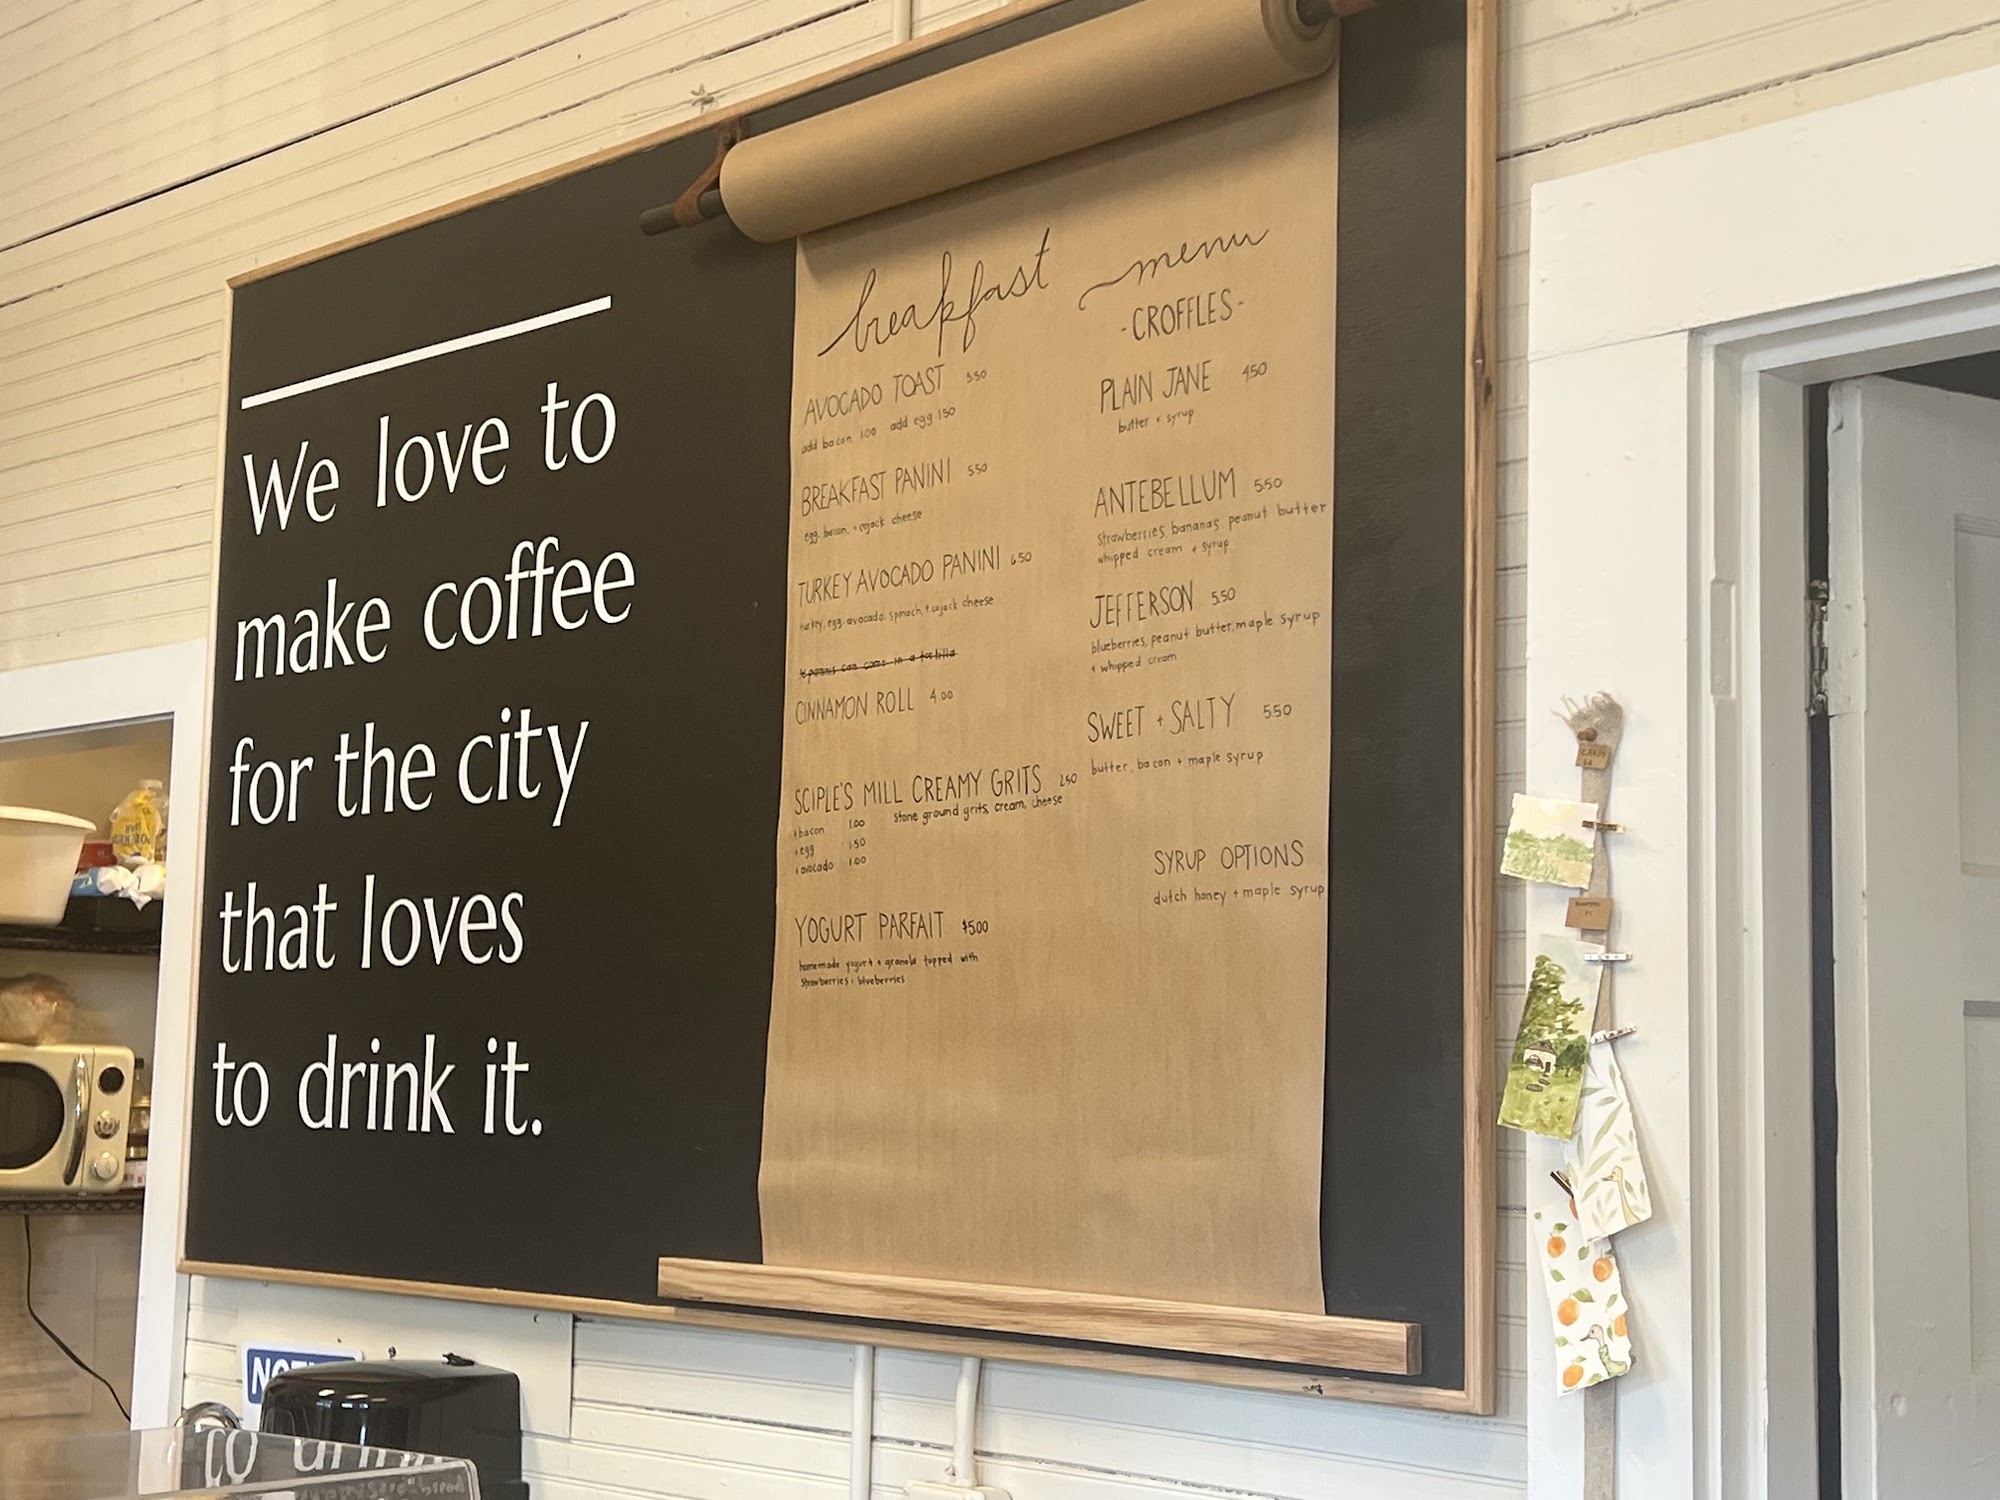 We love to
make coffee
for the city
that loves
to drink it.
breakfast menu
AVOCADO TOAST 5.50
add bacon 1.00 add egg 1.50
BREAKFAST PANINI 5.50
egg, bacon, + cojack cheese
TURKEY AVOCADO PANINI 6.50
turkey, egg, avocado, spinach, + cojack cheese
CINNAMON ROLL 4.00
SCIPLE'S MILL CREAMY GRITS 2.50
stone ground grits, cream, cheese
+ bacon 1.00
+ egg 1.50
+ avocado 1.00
YOGURT PARFAIT $5.00
homemade yogurt + granola topped with
strawberries + blueberries
-CROFFLES-
PLAIN JANE 4.50
butter + syrup
ANTEBELLUM 5.50
strawberries, bananas, peanut butter
whipped cream + syrup
JEFFERSON 5.50
blueberries, peanut butter, maple syrup
+ whipped cream
SWEET + SALTY 5.50
butter, bacon + maple syrup
SYRUP OPTIONS
dutch honey + maple syrup